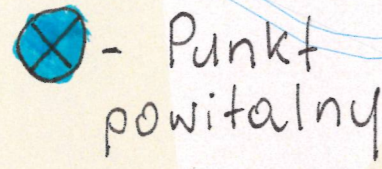 - Punkt
powitalny